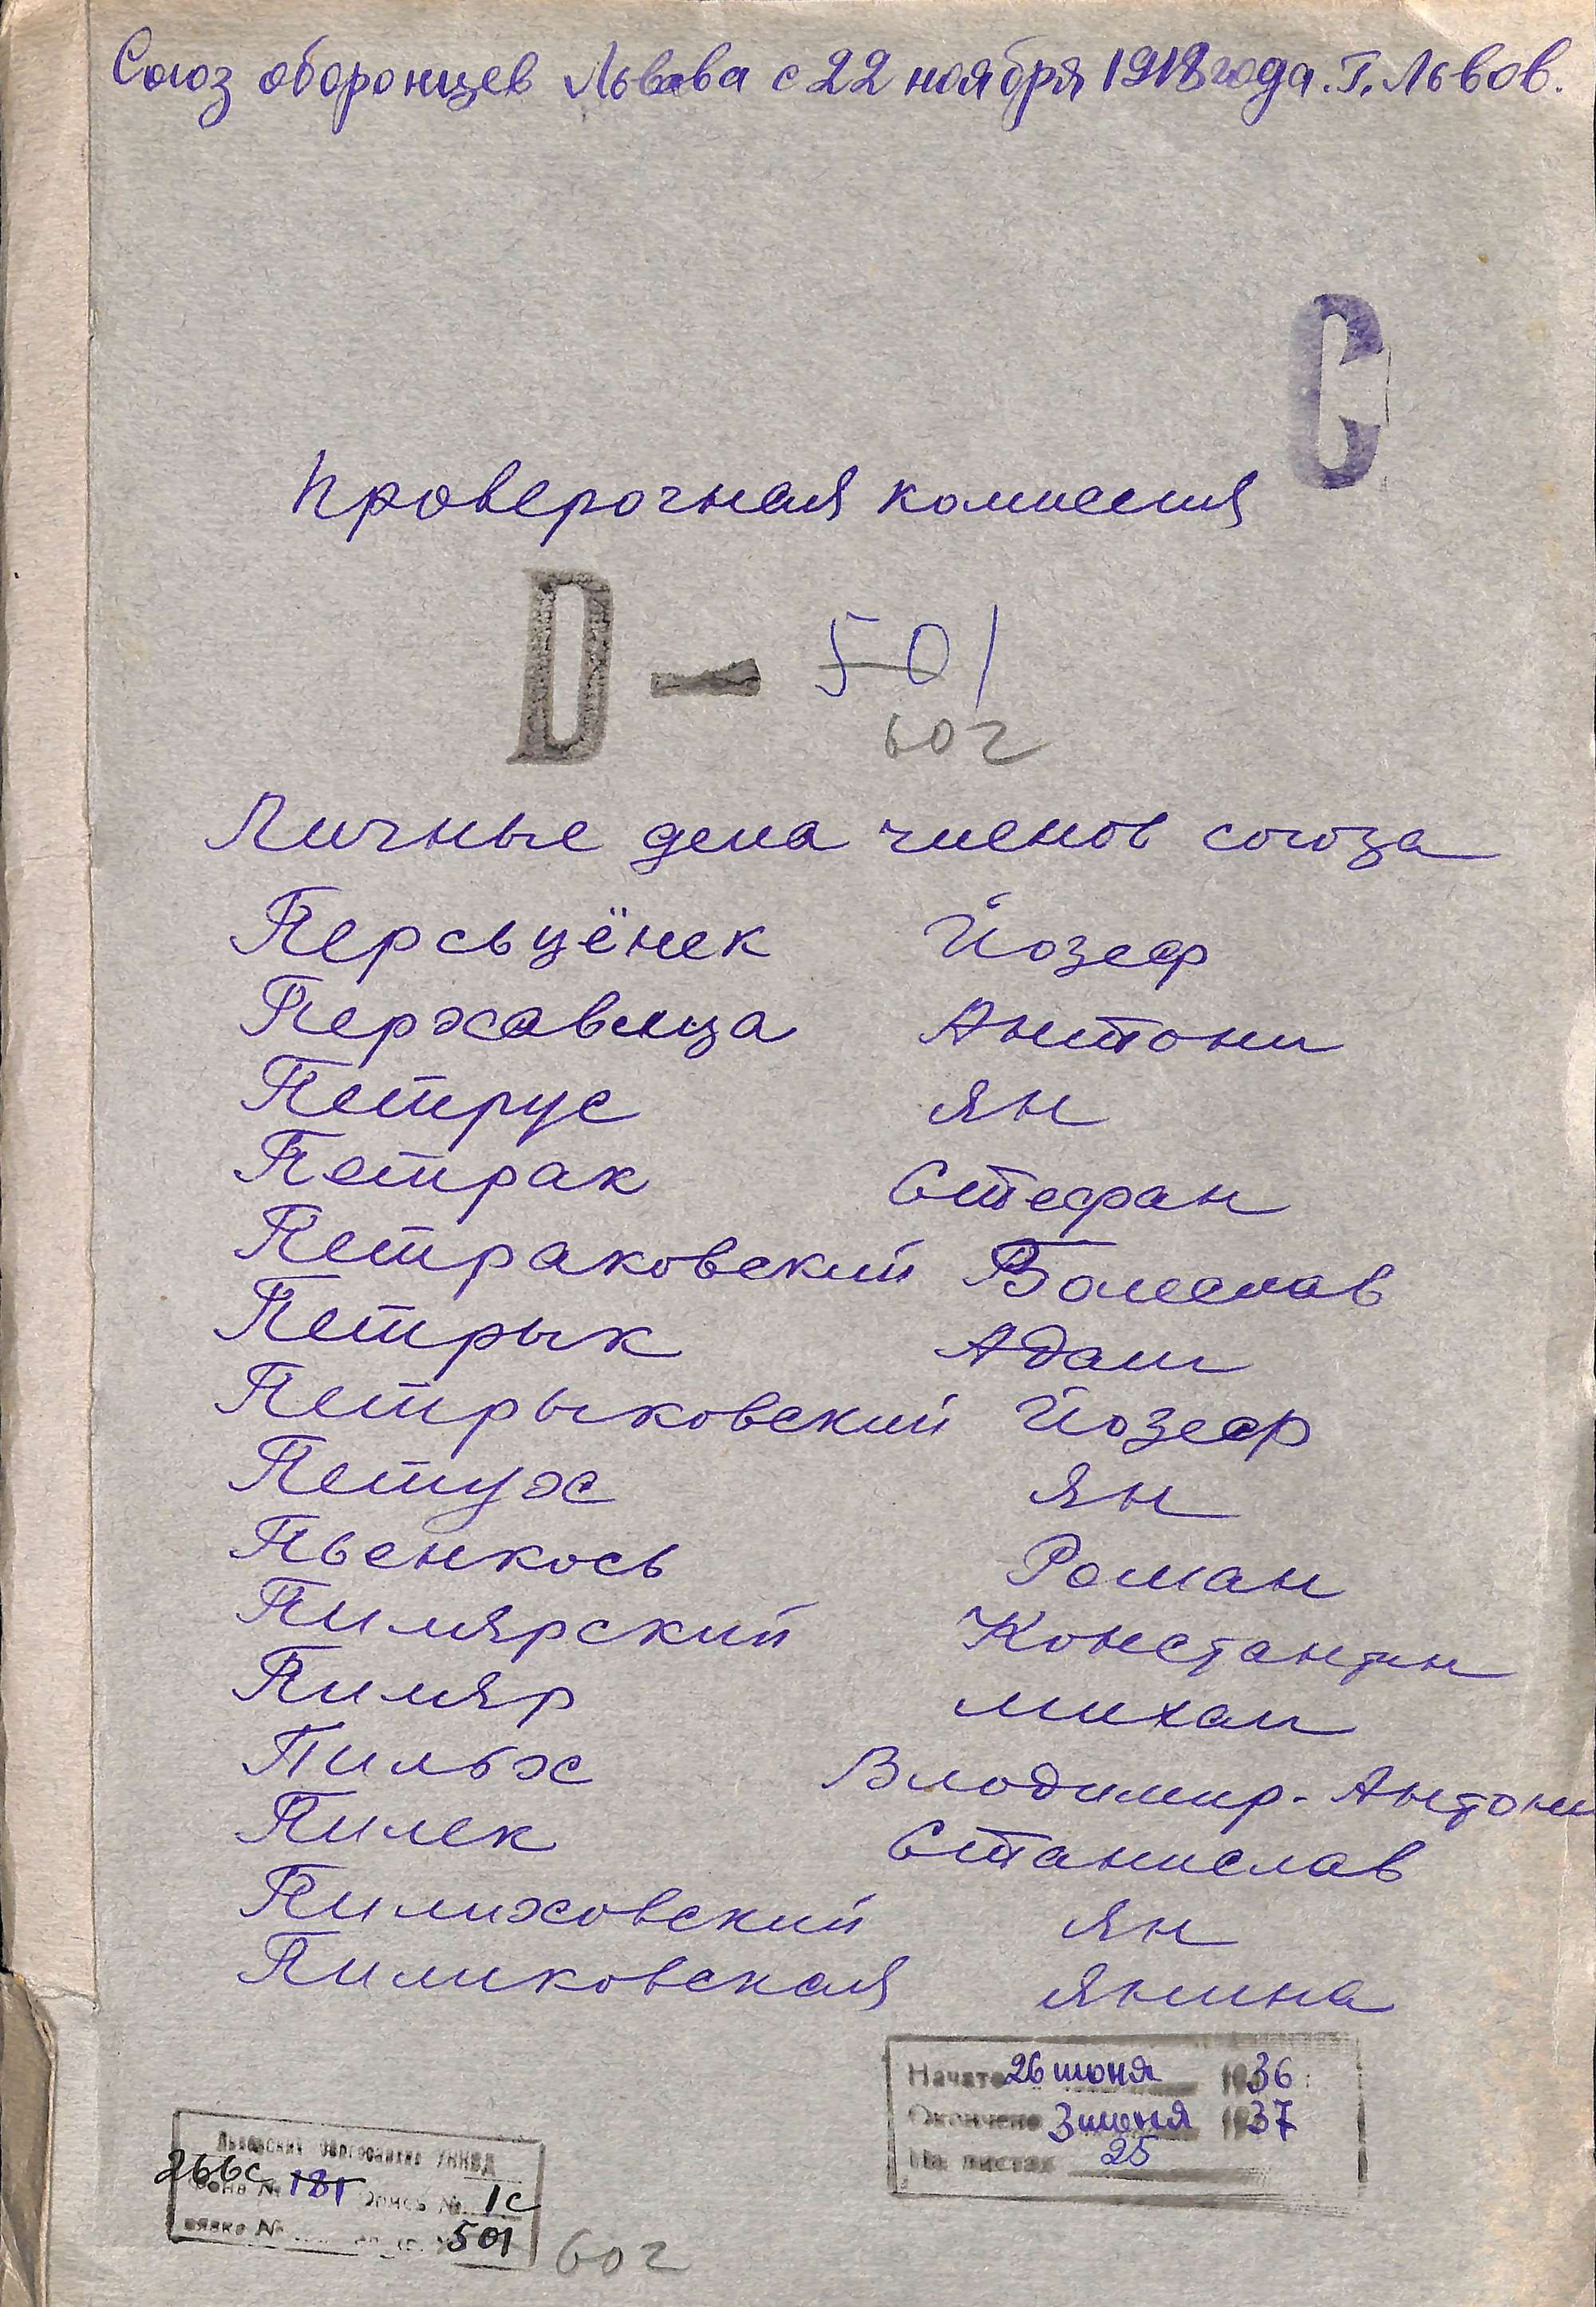 Союз оборонцев Львова с 22 ноября 1918 года. Г. Львов.
С
Проверочная комиссия
D — 501
602
Личные дела членов союза
Персьцёнек Йозеф
Перхавица Антони
Петрус Ян
Петрак Стефан
Петраковский Болеслав
Петрык Адам
Петрыковский Йозеф
Петух Ян
Пьенкось Роман
Пилярский Константин
Пиляр Михал
Пильх Влодимир-Антони
Пилек Станислав
Пилиховский Ян
Пиликовская Янина
Начато 26 июня 1936
Окончено 3 июня 1937
На листах 25
Львовский облгосархив УНКВД
266с Фонд № 181 Опись № 1с
501
602